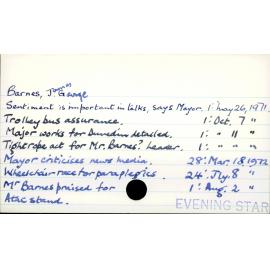 Barnes, James George
Sentiment is important in talks, says Mayor. 1: May 26, 1971.
Trolley bus assurance. 1: Oct. 7 "
Major works for Dunedin detailed. 1: " 11 "
Tightrope act for Mr. Barnes? Leader. 1: " : "
Mayor criticises news media. 28: Mar. 18, 1972
Wheelchair race for paraplegics. 24: Jly. 8 "
Mr Barnes praised for 1: Aug. 2 "
Atac stand.
EVENING STAR